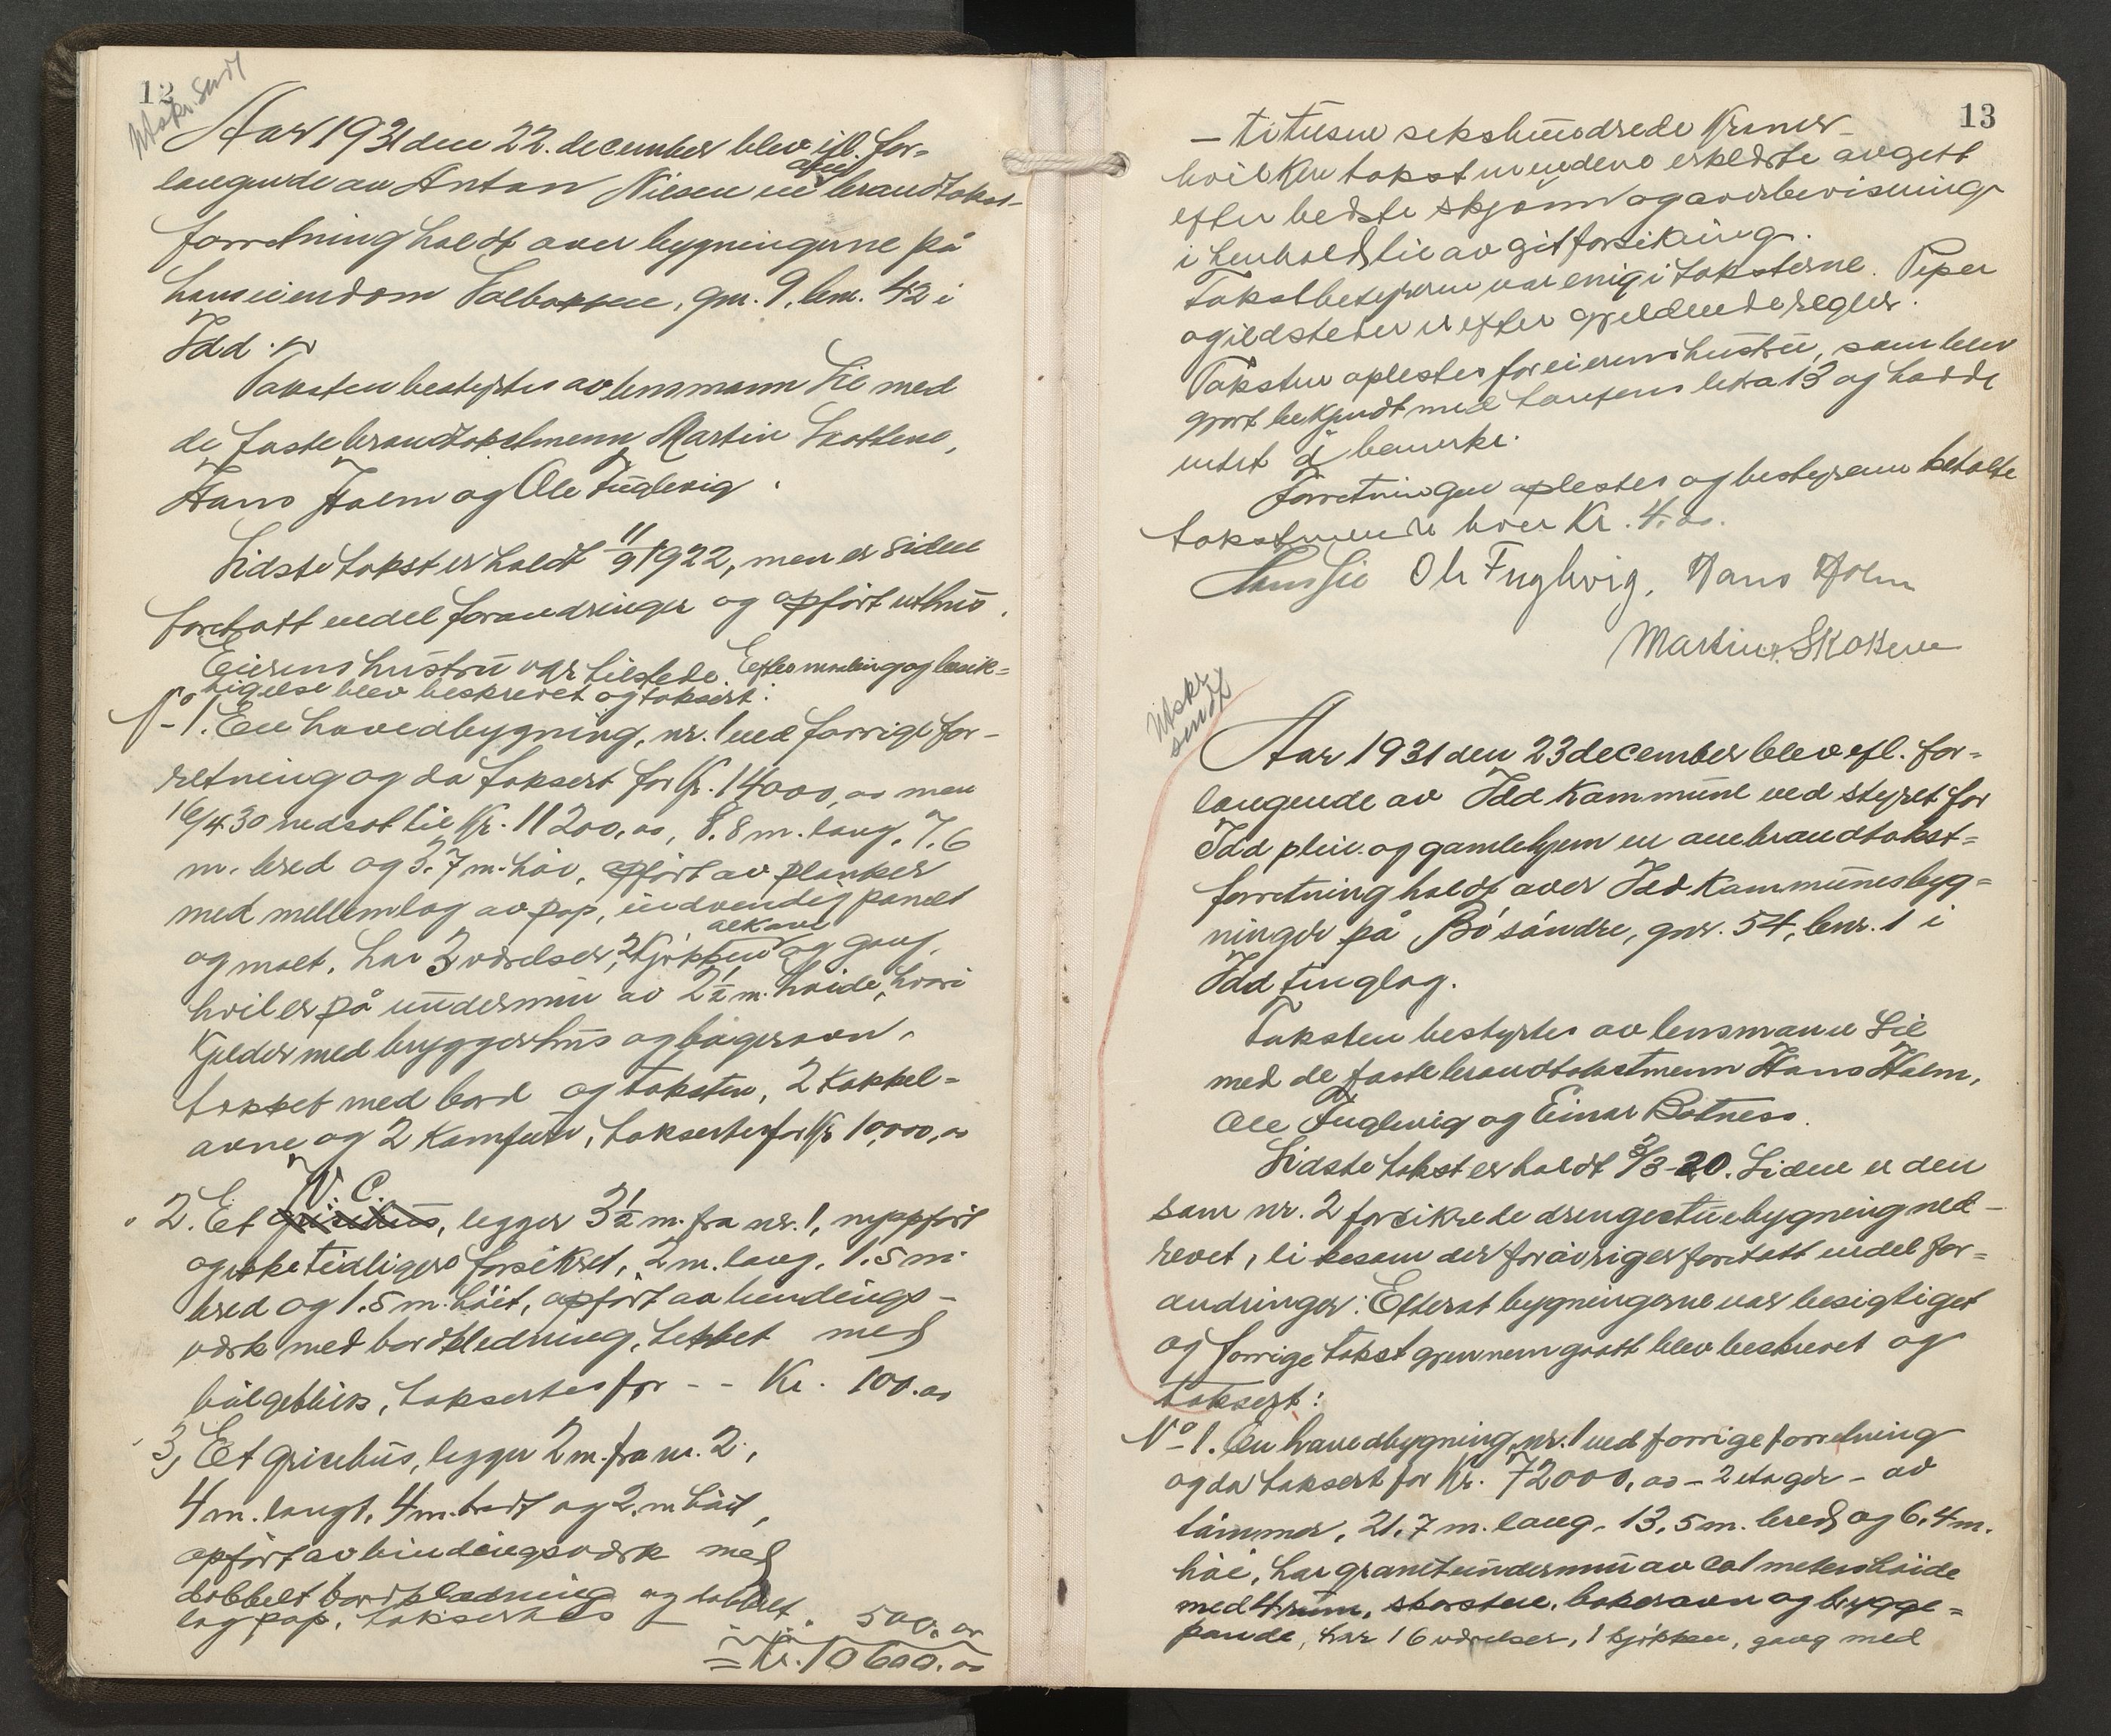 12
Utskr. sendt
Aar 1931 den 22. december blev efl. for-
langende av Anton Nilsen en
avei
brandtakst-
forretning holdt over bygningerne på
hans eiendom Solbakken, gnr. 9, bnr. 42 i
Idd.
Taksten bestyrtes av lensmann Lie med
de faste brandtakstmenn Martin Skotten,
Hans Holm og Ole Fuglevig.
Sidste takst er holdt 11/9 1922, men er siden
foretatt endel forandringer og opført uthus.
Eierens hustru var tilstede. Efter maaling og besik-
tigelse blev beskrevet og taksert:
No 1. En hovedbygning, nr. 1 ved forrige for-
retning og da taksert for Kr. 14000,00 men
16/4 30 nedsat til Kr. 11200,00, 8.8 m. lang, 7.6
m. bred og 3.7 m. høi, opført av planker
med mellemlag av pap, indvendig panelt
og malt, har 3 værelser, 2 kjøkken
alkove
og gang,
hviler på undermur av 2½ m. høide, hvori
kjelder med bryggerhus og bagerovn,
tekket med bord og taksten, 2 kakkel-
ovne og 2 komfurer, taksertes for Kr 10,000,00
W. C.
2. Et grisehus, legger 3½ m. fra nr. 1, nyopført
og ikke tidligere forsikret, 2 m. lang, 1.5 m.
bred og 1.5 m. høit, opført av bindings-
værk med bordkledning, tekket med
bølgeblikk, taksertes for - - Kr. 100.00
3, Et grisehus, legger 2 m. fra nr. 2,
4 m. langt, 4 m. bredt og 2. m høit,
opført av bindingsværk med
dobbelt bordkledning og dobbelt
lag pap, taksertes - " 500.00
= Kr. 10600.00
13
- titusen sekshundrede Kroner -
hvilken takst mendene erklærte avgitt
efter bedste skjønn og overbevisning
i henhold til avgit forsikring.
Takstbestyreren var enig i taksterne. Piper
og ildsteder er efter gjeldende regler.
Taksten oplestes for eierens hustru, som blev
gjort bekjendt med lovens litra 13 og hadde
intet å bemerke.
Forretningen oplestes og bestyreren betalte
takstmennene hver Kr. 4.00.
Hans Lie Ole Fuglevig, Hans Holm
Martin Skotten
Utskr.
sendt
Aar 1931 den 23 december blev efl. for-
langende av Idd kommune ved styret for
Idd pleie- og gamlehjem en ane brandtakst-
forretning holdt over Idd kommunes byg-
ninger på Bø søndre, gnr. 54, bnr. 1 i
Idd tinglag.
Taksten bestyrtes av lensmann Lie
med de faste brandtakstmenn Hans Holm,
Ole Fuglevig og Einar Botness.
Sidste takst er holdt 3/3-20. Siden er den
som nr. 2 forsikrede drengestuebygning ned-
revet, likesom der forøvrig er foretatt endel for-
andringer. Efterat bygningerne var besigtiget
og forrige takst gjennemgaatt blev beskrevet og
taksert:
No 1. En hovedbygning, nr. 1 ved forrige forretning
og da taksert for Kr. 72000,00 - 2 etager - av
tømmer, 21,7 m. lang, 13,5 m. bred og 6,4 m.
høi, har granitundermur av ca 1 meters høide
med 4 rum, skorstene, bakerovn og brygge-
pande, har 16 værelser, 1 kjøkken, gang med